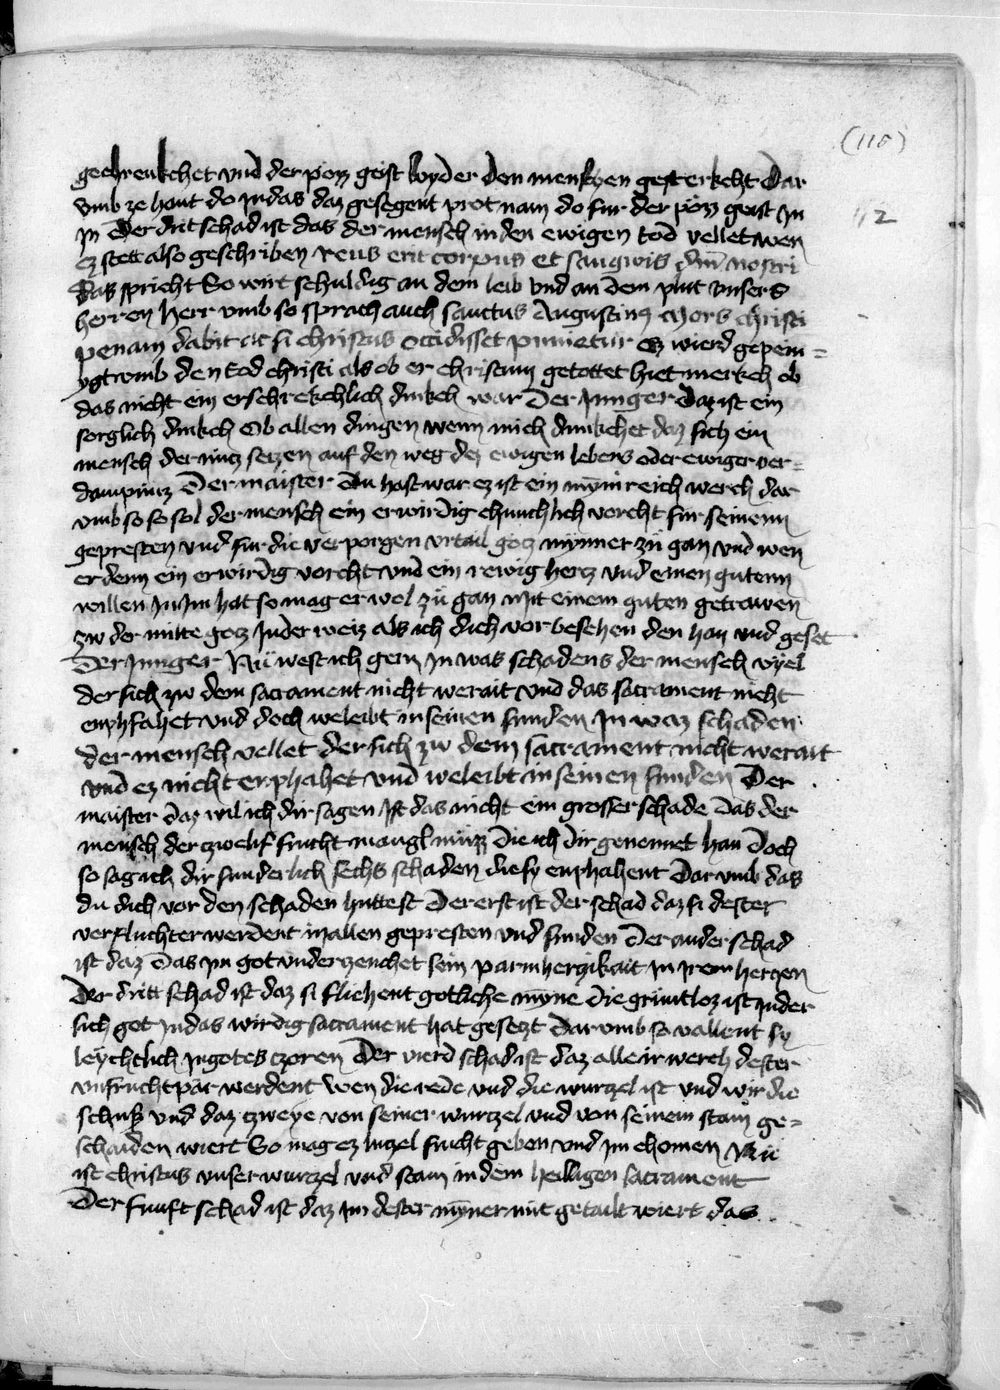 (110)
112
gechrenkchet vnd der pozz geist wyder den menschen gesterkcht Dar
vmb ze hant do Judas daz gesegent prot nam do fur der pözz geist jn
jn Der drit schad ist das der mensch in den ewigen tod vellet wen
ez stett also geschriben reus erit corpus et sangwis dni nostri
Das spricht So wirt schuldig an dem leib vnd an dem plut vnsers
herren Herr vmb so sprach auch sanctus Augustinus Mors christi
penam dabit ac si christus occidisset punietur Ez wierd gepein=
ygt vmb den tod christi als ob er christum getottet hiet merkch ob
das nicht ein erschrekchlich dinkch war Der Junger Daz ist ein
sorglich dinkch Ob allen dingen wenn mich dunkchet daz sich ein
mensch der mitz setzen auf den weg dez ewigen lebens oder ewiger ver=
dampnuz Der maister Du hast war ez ist ein mynnreich werch dar
vmb so so sol der mensch ein erwirdig chintlich vorcht fur seinenn
gepresten vnd fur die verporgen vrtail gotz mynner zu gan vnd wen
er denn ein erwirdig vorcht vnd ein rewig hertz vnd einen gutenn
willen jn im hat so mag er wol zu gan Mit einem guten getrawen
zw der milte gotz Jn der weiz als ich dich vor beschehen den han vnd geset
Der Junger Nu west ich gern Jn was schadens der mensch vyel
der sich zw dem sacrament nicht werait vnd das sacrament nicht
emphfahet vnd doch weleibt in seinen sunden Jn waz schaden
der mensch vellet der sich zw dem sacrament nicht werait
vnd ez nicht enphahet vnd weleibt in seinen sunden Der
maister Daz wil ich dir sagen Ist das nicht ein grosser schade Das der
mensch der zwelif frucht mangl müzz Die ich dir genennet han Doch
so sag ich dir sunderlich sechs schaden die sy enphahent Dar vmb das
du dich vor den schaden huttest Der erst ist der schad daz si dester
verfluchter werdent in allen gepresten vnd sunden Der ander schad
ist daz Das im got vnderzeuchet sein parmherzikait jn irem hertzen
Der dritt schad ist daz si fliehent gotliche myne Die gruntloz ist Jn der
sich got Jn das wirdig sacrament hat gesetzt Dar vmb so vallent sy
leychtlich in gotes czoren Der vierd schad ist daz alle ir werch dester
vnfruchtpar werdent Wen die rede vnd die wurtzel ist vnd wir die
schuss vnd daz tzweye von seiner wurtzel vnd von seinem stam ge=
schaiden wiert So mag ez lutzel frucht geben vnd im chomen Nu
ist christus vnser wurtzel vnd stam in dem heiligen sacrament
Der funft schad ist daz im dester mynner mit getailt wiert das